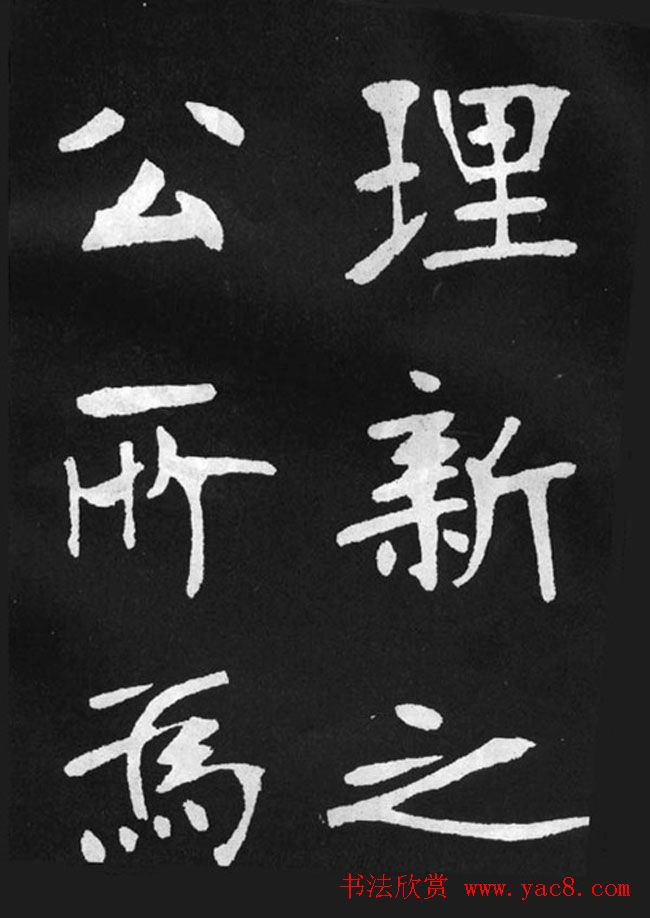 理新之
公所為
书法欣赏 www.yac8.com